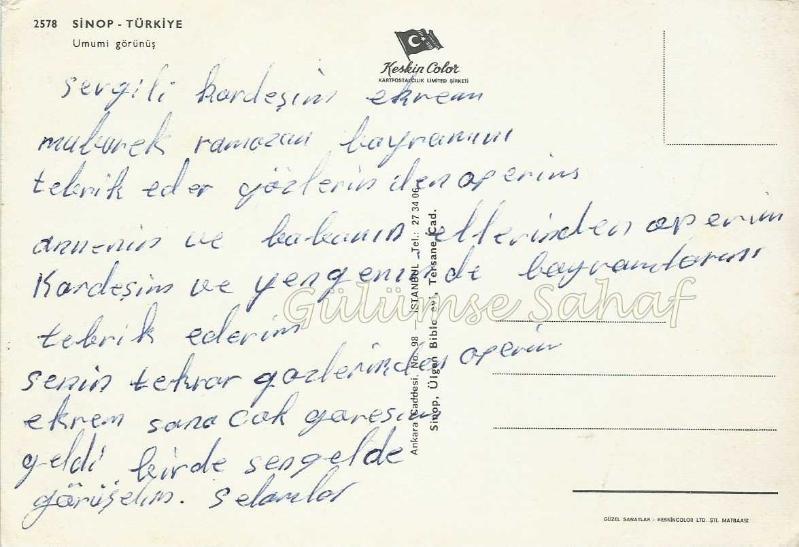 2578 SİNOP - TÜRKİYE
Umumi görünüş
Keskin Color
KARTPOSTALCILIK LİMİTED ŞİRKETİ
Sevgili kardeşim ekrem
muburek ramazan bayramını
tebrik eder gözlerinden operim
annenin ve babanın ellerinden operim
Kardeşim ve yengeninde bayramlarını
tebrik ederim
senin tekrar gozlerinden operim
ekrem sana cok goresim
geldi birde sengelde
görüşelim. selamlar
Ankara Caddesi, No. 98 - İSTANBUL Tel.: 27 34 06
Sinop, Ülgen Bible evi, Tersane Cad.
Gülümse Sahaf
GÜZEL SANATLAR - KESKİNCOLOR LTD. ŞTİ. MATBAASI